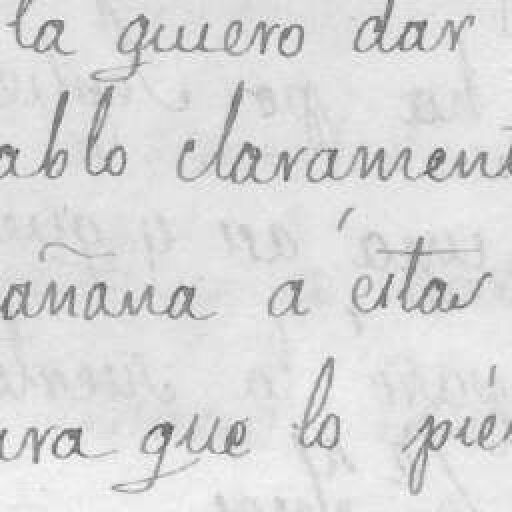 la quiero dar
ablo clarament
añana a éstas
ara que lo pién